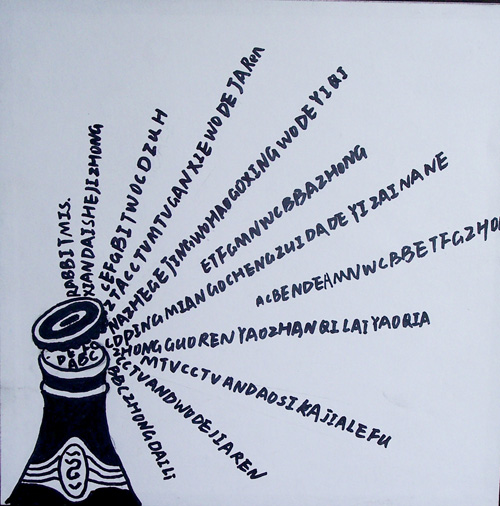 RABBITMIS.
XIANDAISHEJIZHONG
CEFGBITWOCDZUH
ZTACCTVMTVGANXIEWODEJIARen
NAZHEGEJINGWUHAOGOXINGWODEYIQI
ETFGMNWCBBAZHONG
LDPINGMIANGOCHENGZUIDADEYIZAINANE
ACBENDEAMNWCBBETFGZHO
ZHONGGUORENYAOZHANQILAIYAOQIA
MTVCCTVANDAOSIKAJIALEFU
CCTVANDWODEJIAREN
BBCZHONGDAILI
ABC